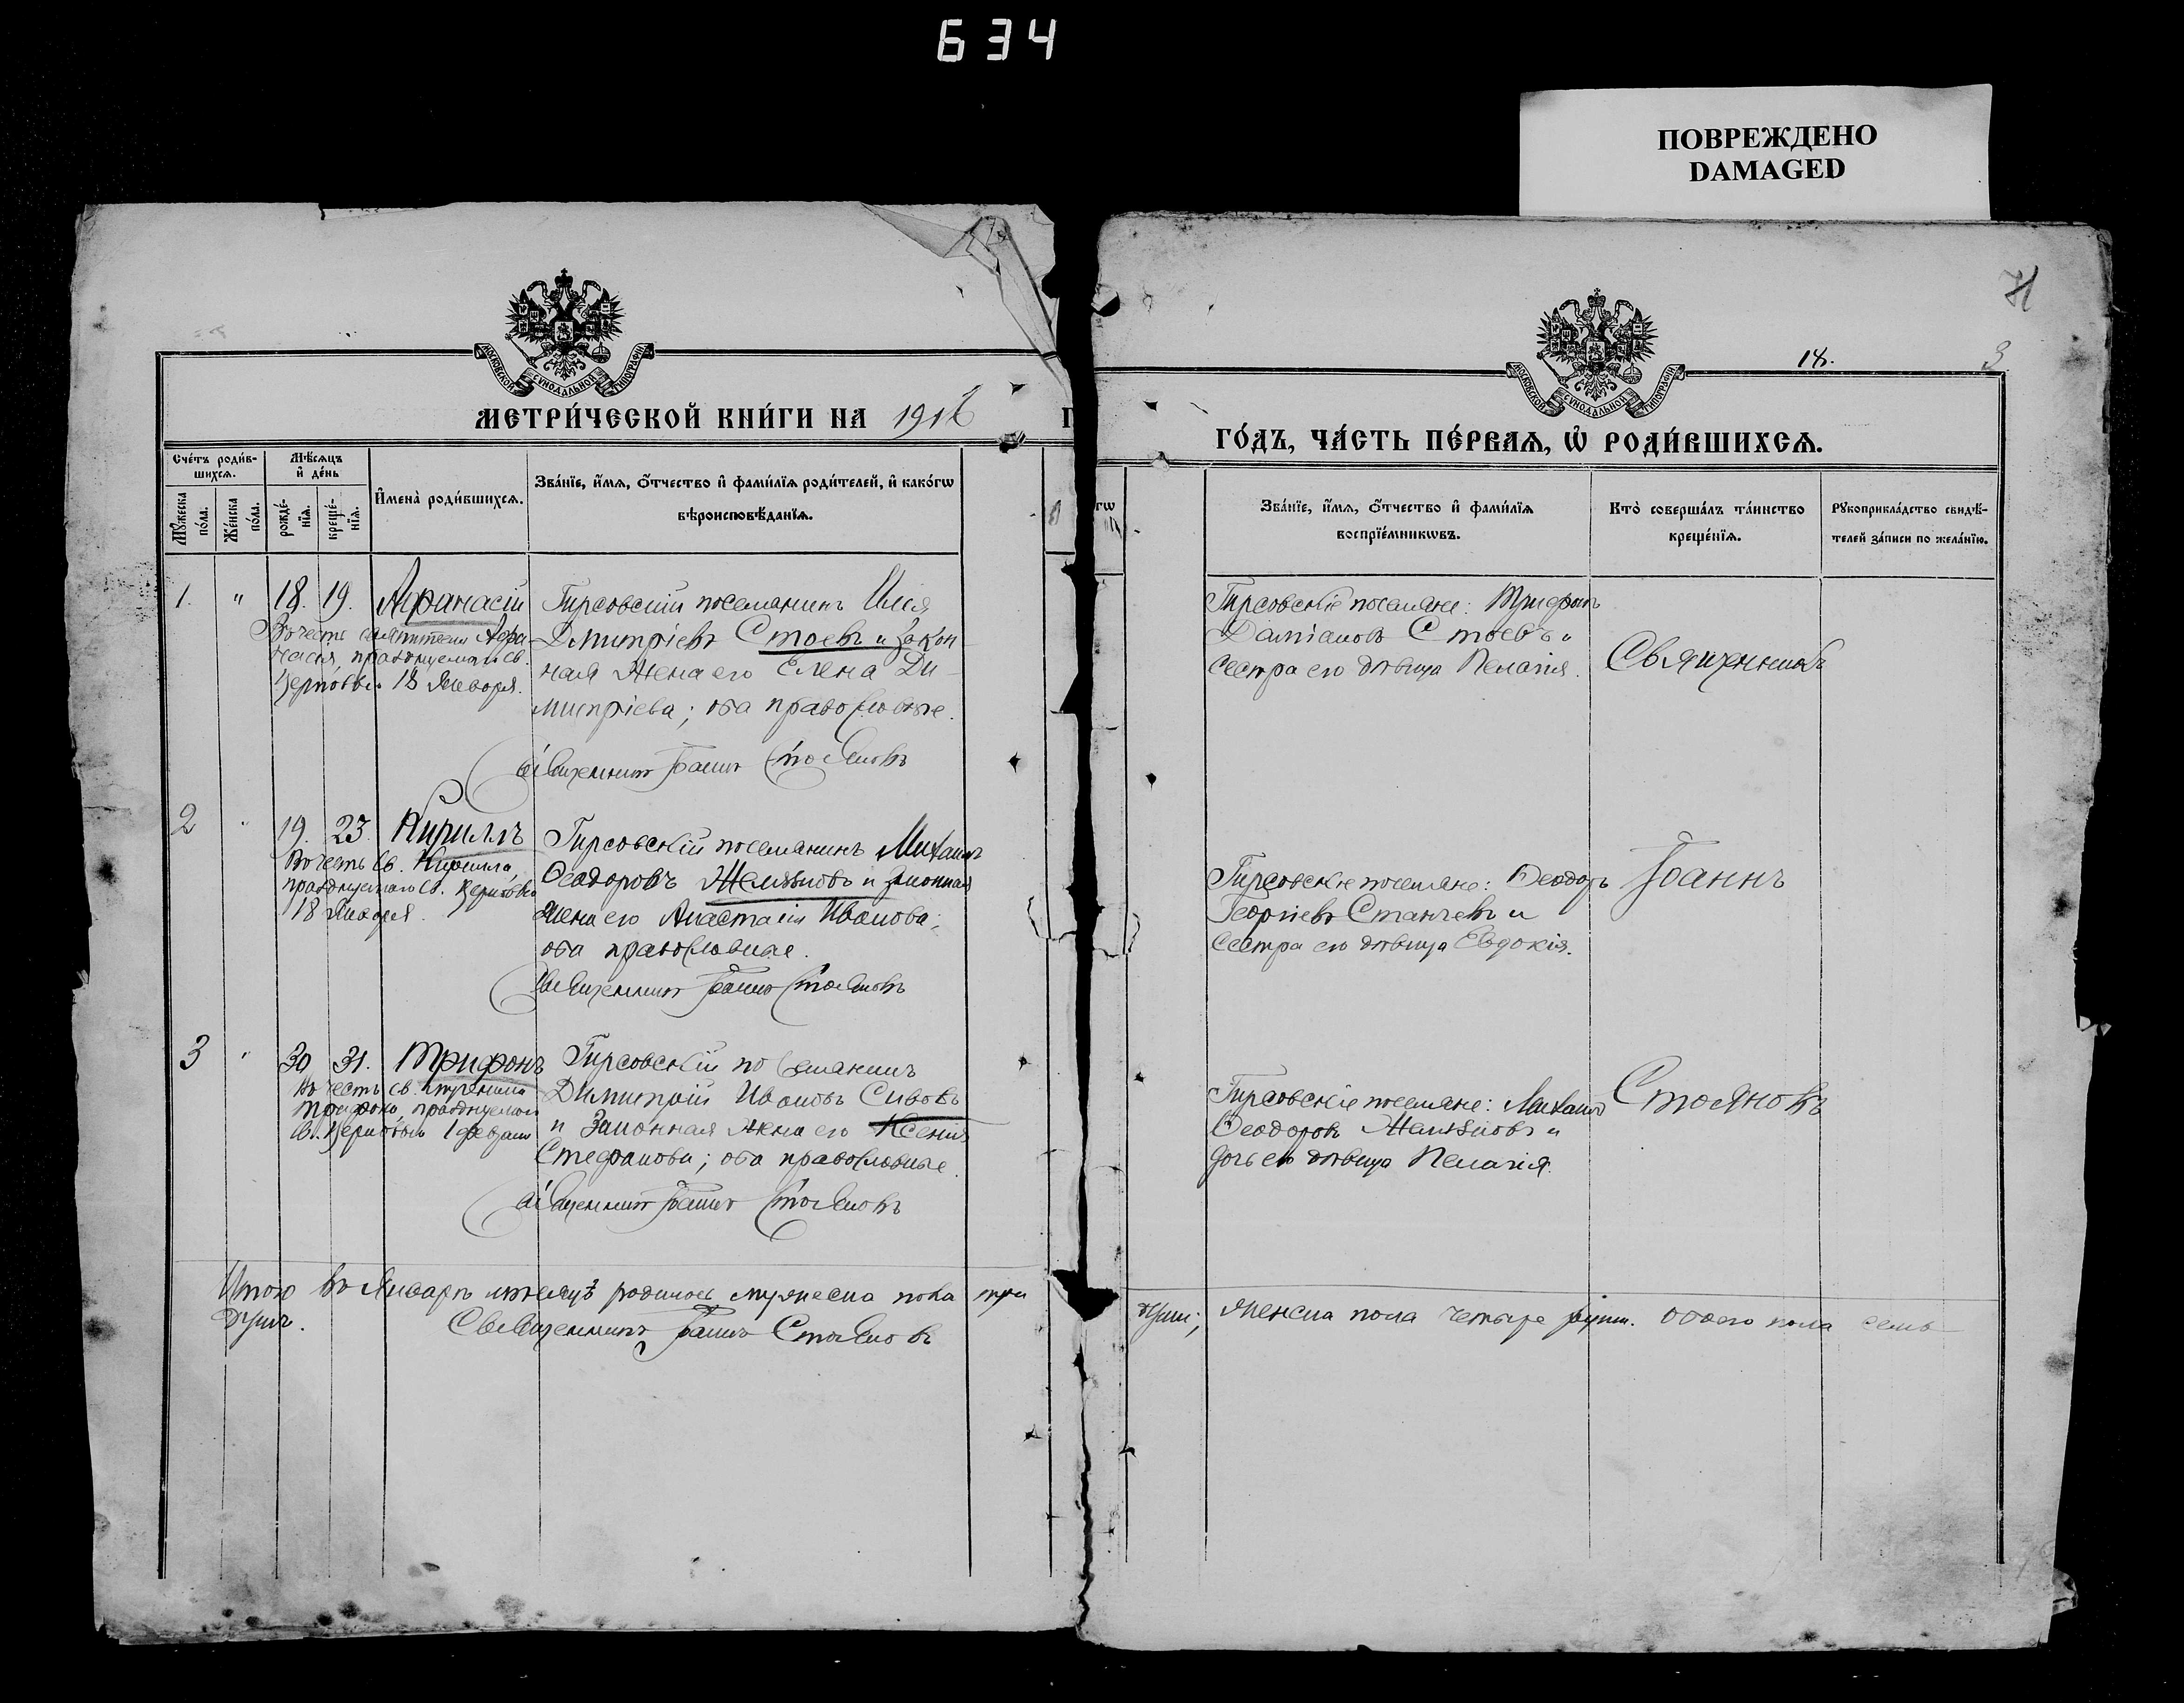 634
ПОВРЕЖДЕНО
DAMAGED
МОСКОВСКОЙ СѴНОДАЛЬНОЙ ТИПОГРАФІИ
МЕТРИ́ЧЕСКОЙ КНИ́ГИ НА 1916
Сче́тъ роди́в-
шихсѧ.
Мѣ́сяцъ
и҆ де́нь
Мꙋ́жеска
по́ла.
Же́нска
по́ла.
рожде́-
нїѧ.
креще́-
нїѧ.
И҆мена̀ роди́вшихсѧ.
Зва́нїе, и҆́мѧ, ѻ҆́тчество и҆ фами́лїѧ роди́телей, и҆ како́гѡ
вѣроисповѣ́данїѧ.
1. " 18. 19. Афанасій
Въ честь святителя Афа-
насія, празднуемаго св.
Церковью 18 Января.
Гирсовскій поселянинъ Илія
Димитріевъ Стоевъ и закон
ная жена его Елена Ди-
митріева; оба православные.
Священникъ Іоаннъ Стояновъ
2 " 19. 23. Кириллъ
Въ честь Св. Кирилла,
празднуемаго Св. Церковью
18 Января.
Гирсовскій поселянинъ Михаилъ
Ѳеодоровъ Желѣзковъ и законная
жена его Анастасія Иванова;
оба православные.
Священникъ Іоаннъ Стояновъ
3 " 30 31. Трифонъ
Въ честь св. мученика
Трифона, празднуемаго
св. Церковью 1 февраля
Гирсовскій поселянинъ
Димитрій Ивановъ Сивовъ
и Законная жена его Ксенія
Стефанова; оба православные.
Священникъ Іоаннъ Стояновъ
Итого въ Январѣ мѣсяцѣ родилось мужеска пола три
душъ.
Священникъ Іоаннъ Стояновъ
18.
3
МОСКОВСКОЙ СѴНОДАЛЬНОЙ ТИПОГРАФІИ
ГО́ДЪ, ЧА́СТЬ ПЕ́РВАѦ, Ѽ РОДИ́ВШИХСѦ.
гѡ
Зва́нїе, и҆́мѧ, ѻ҆́тчество и҆ фами́лїѧ
воспрїе́мникѡвъ.
Кто̀ соверша́лъ та́инство
креще́нїѧ.
Рꙋкоприкла́дство свидѣ́-
телей за́писи по жела́нїю.
Гирсовскіе поселяне: Трифонъ
Даміановъ Стоевъ и
сестра его дѣвица Пелагія.
Священникъ
Гирсовскіе поселяне: Ѳеодоръ
Георгіевъ Станчевъ и
сестра его дѣвица Евдокія.
Іоаннъ
Гирсовскіе поселяне: Михаилъ
Ѳеодоровъ Желѣзковъ и
дочь его дѣвица Пелагія.
Стояновъ
души; женска пола четыре души. Обоего пола семь